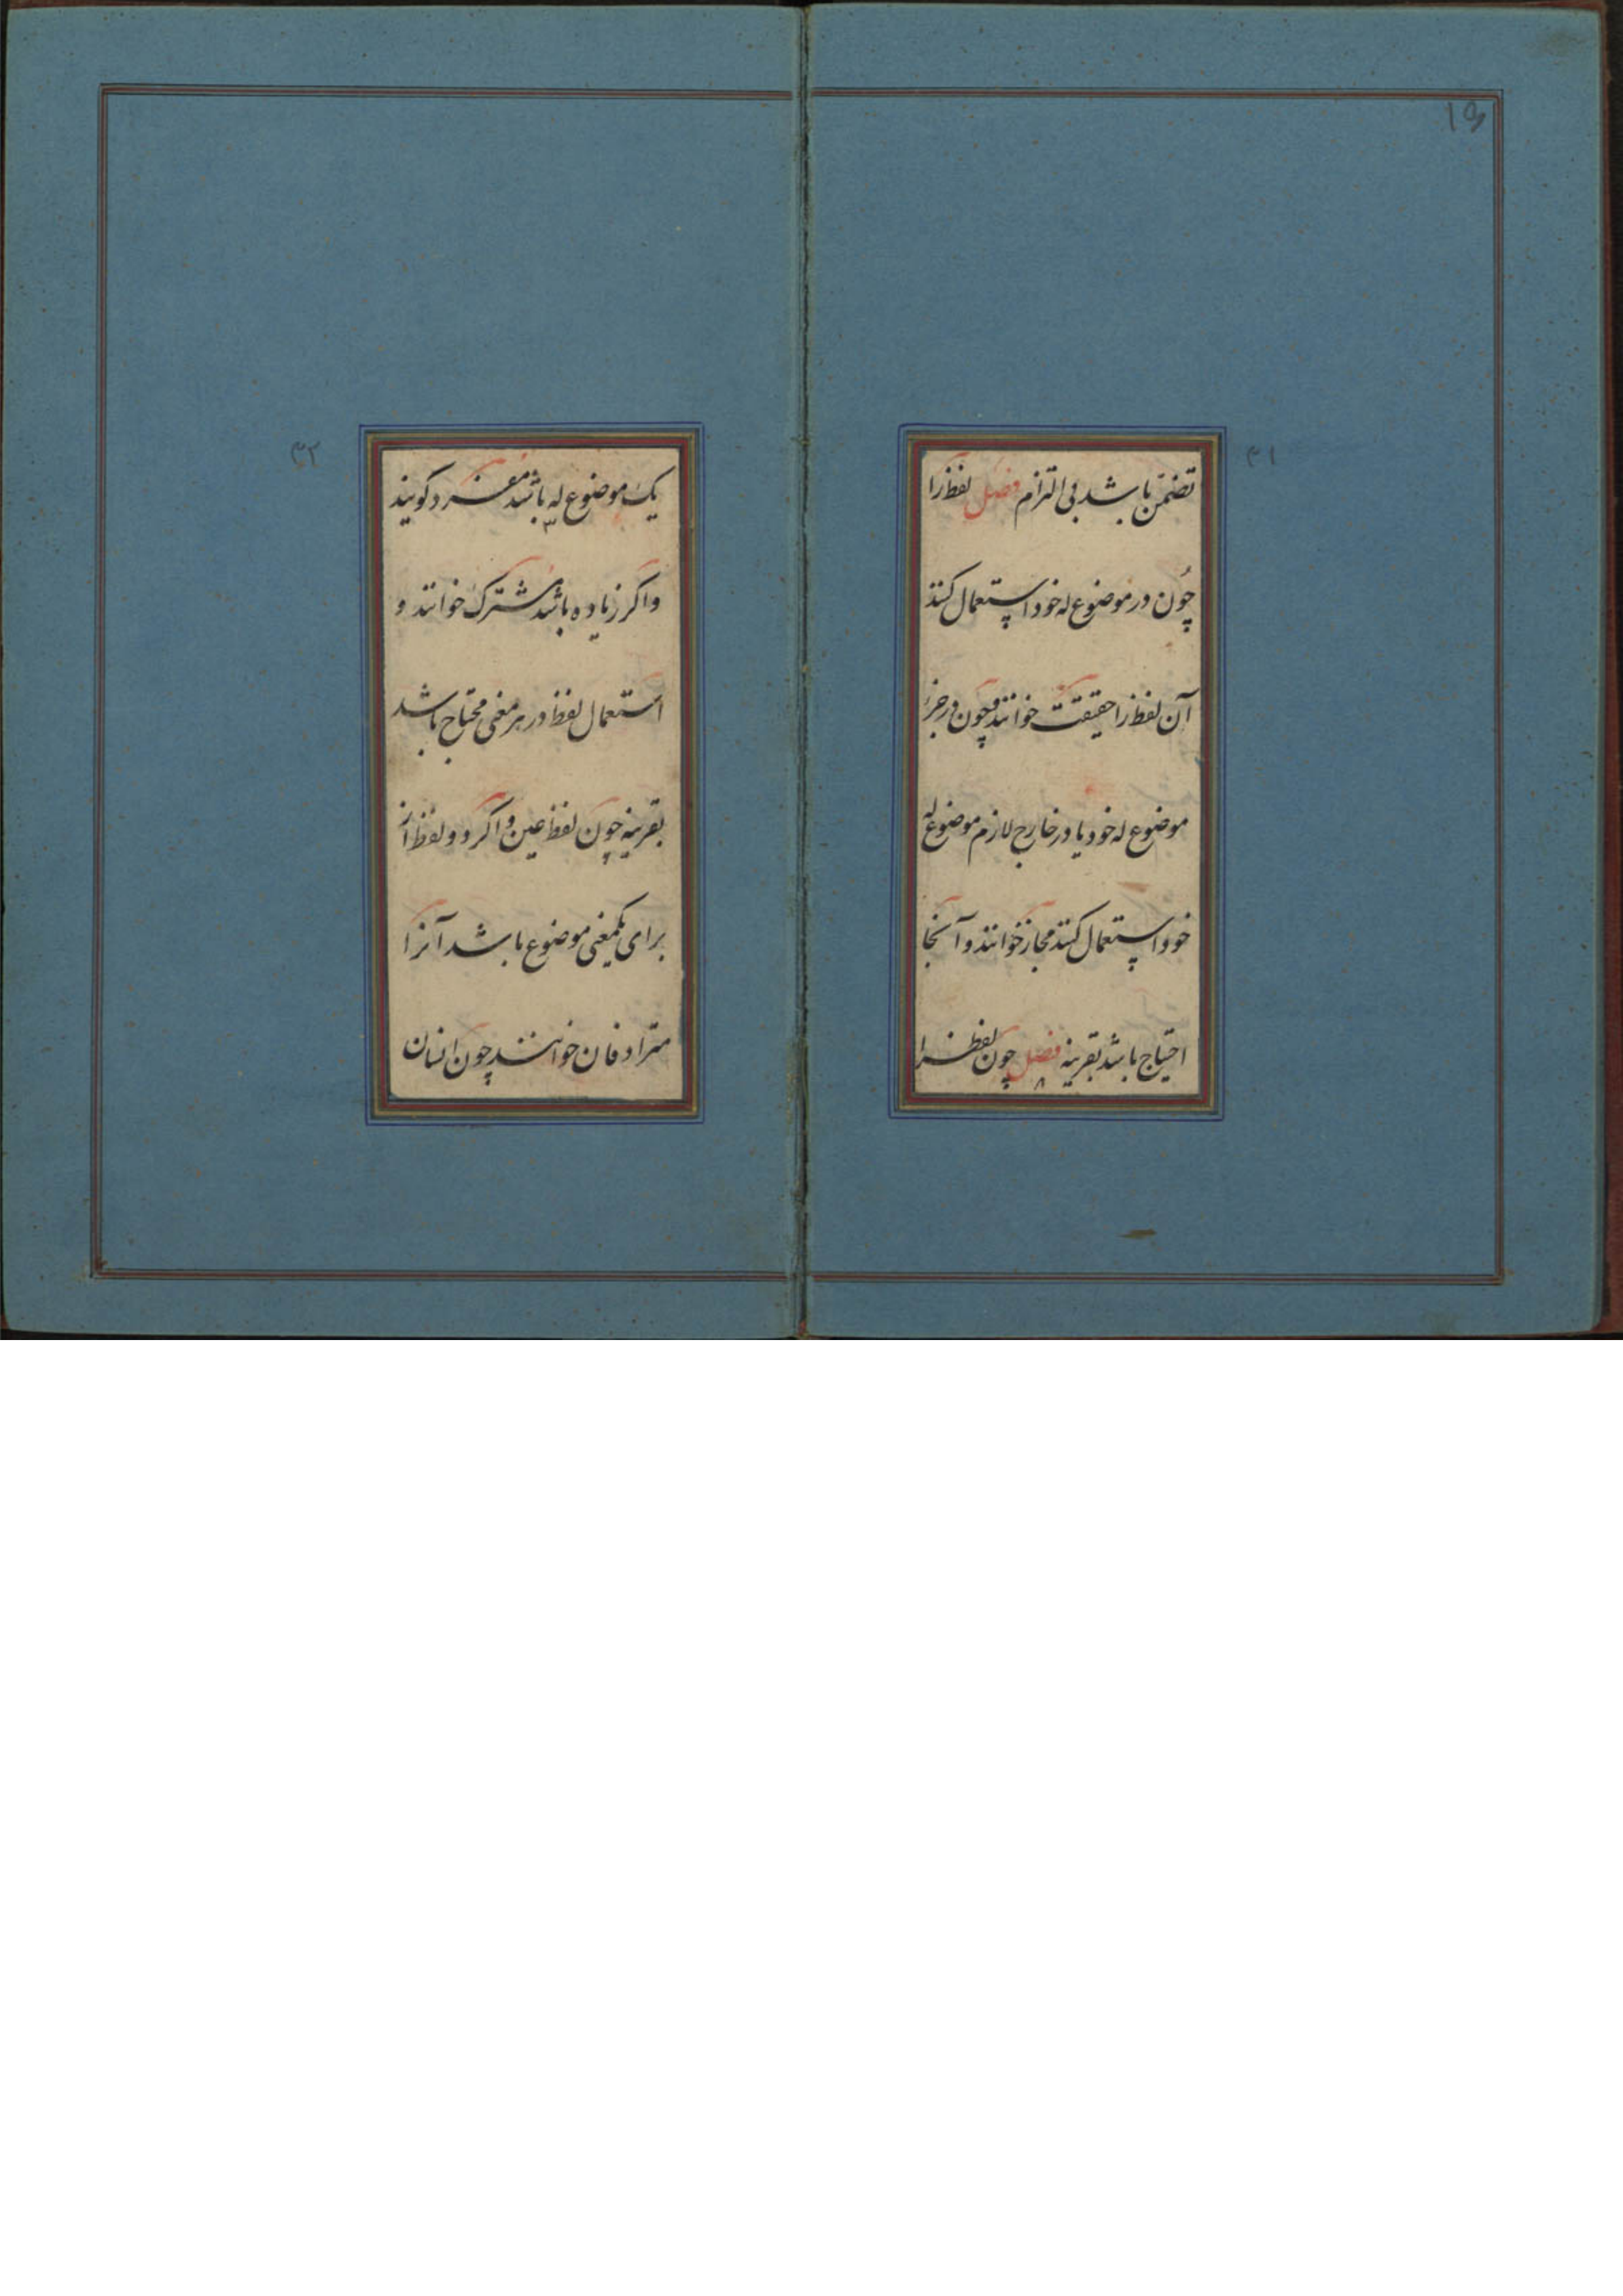 ۳۱
تضمن باشد بی التزام فصل لفظ را
چون در موضوع له خود استعمال کنند
آن لفظ را حقیقت خوانند و چون در جزء
موضوع له خود یا در خارج لازم موضوع له
خود استعمال کنند مجاز خوانند و آنجا
احتیاج باشد بقرینه فصل چون لفظ را
۳۲
یک موضوع له باشد مفرد گویند
و اگر زیاده باشد مشترک خوانند و
استعمال لفظ در هر معنی محتاج باشد
بقرینه چون لفظ عین و اگر دو لفظ از
برای یکمعنی موضوع باشد آنرا
مترادفان خوانند چون انسان